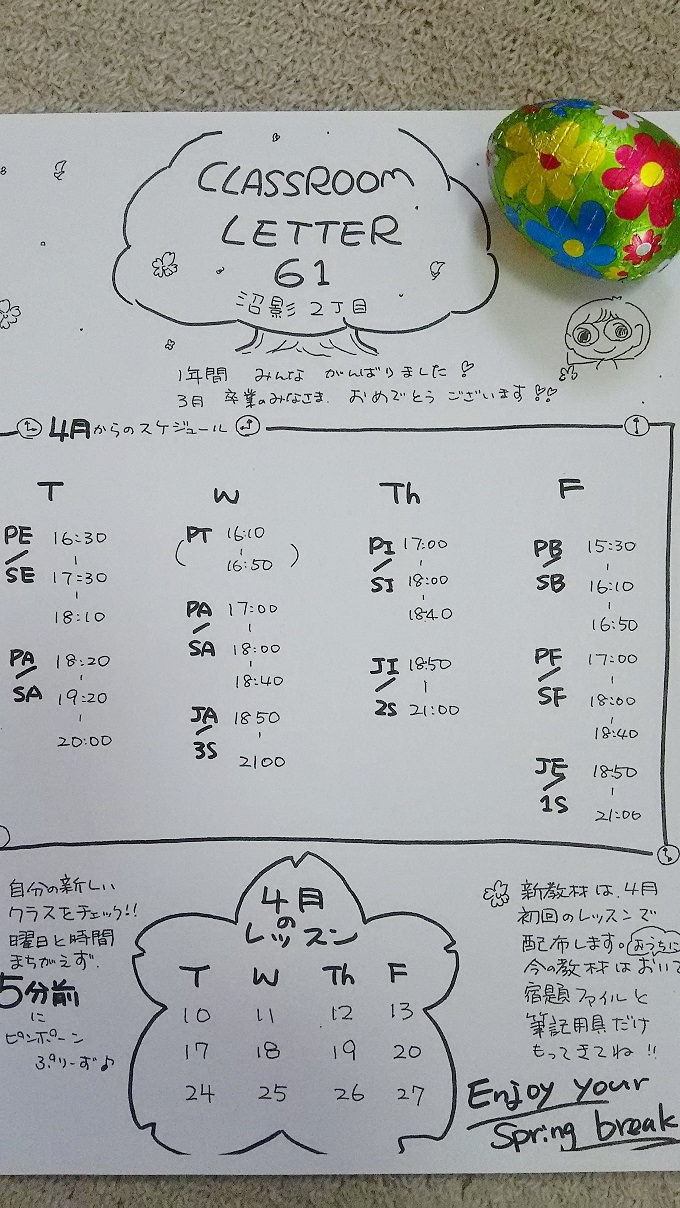 CLASSROOM
LETTER
61
沼影 2丁目
1年間 みんな がんばりました!
3月 卒業のみなさま. おめでとう ございます!!
4月からのスケジュール
T
PE/SE 16:30
17:30
18:10
PA/SA 18:20
19:20
20:00
W
PT (16:10
16:50)
PA/SA 17:00
18:00
18:40
JA/3S 18:50
21:00
Th
PI/SI 17:00
18:00
18:40
JI/2S 18:50
21:00
F
PB/SB 15:30
16:10
16:50
PF/SF 17:00
18:00
18:40
JE/1S 18:50
21:00
自分の新しい
クラスをチェック!!
曜日と時間
まちがえず.
5分前
に
ピンポーン
ぷりーず♪
4月
の
レッスン
T W Th F
10 11 12 13
17 18 19 20
24 25 26 27
新教材は、4月
初回のレッスンで
配布します。おうちに
今の教材はおいて
宿題ファイルと
筆記用具だけ
もってきてね!!
Enjoy your
Spring break